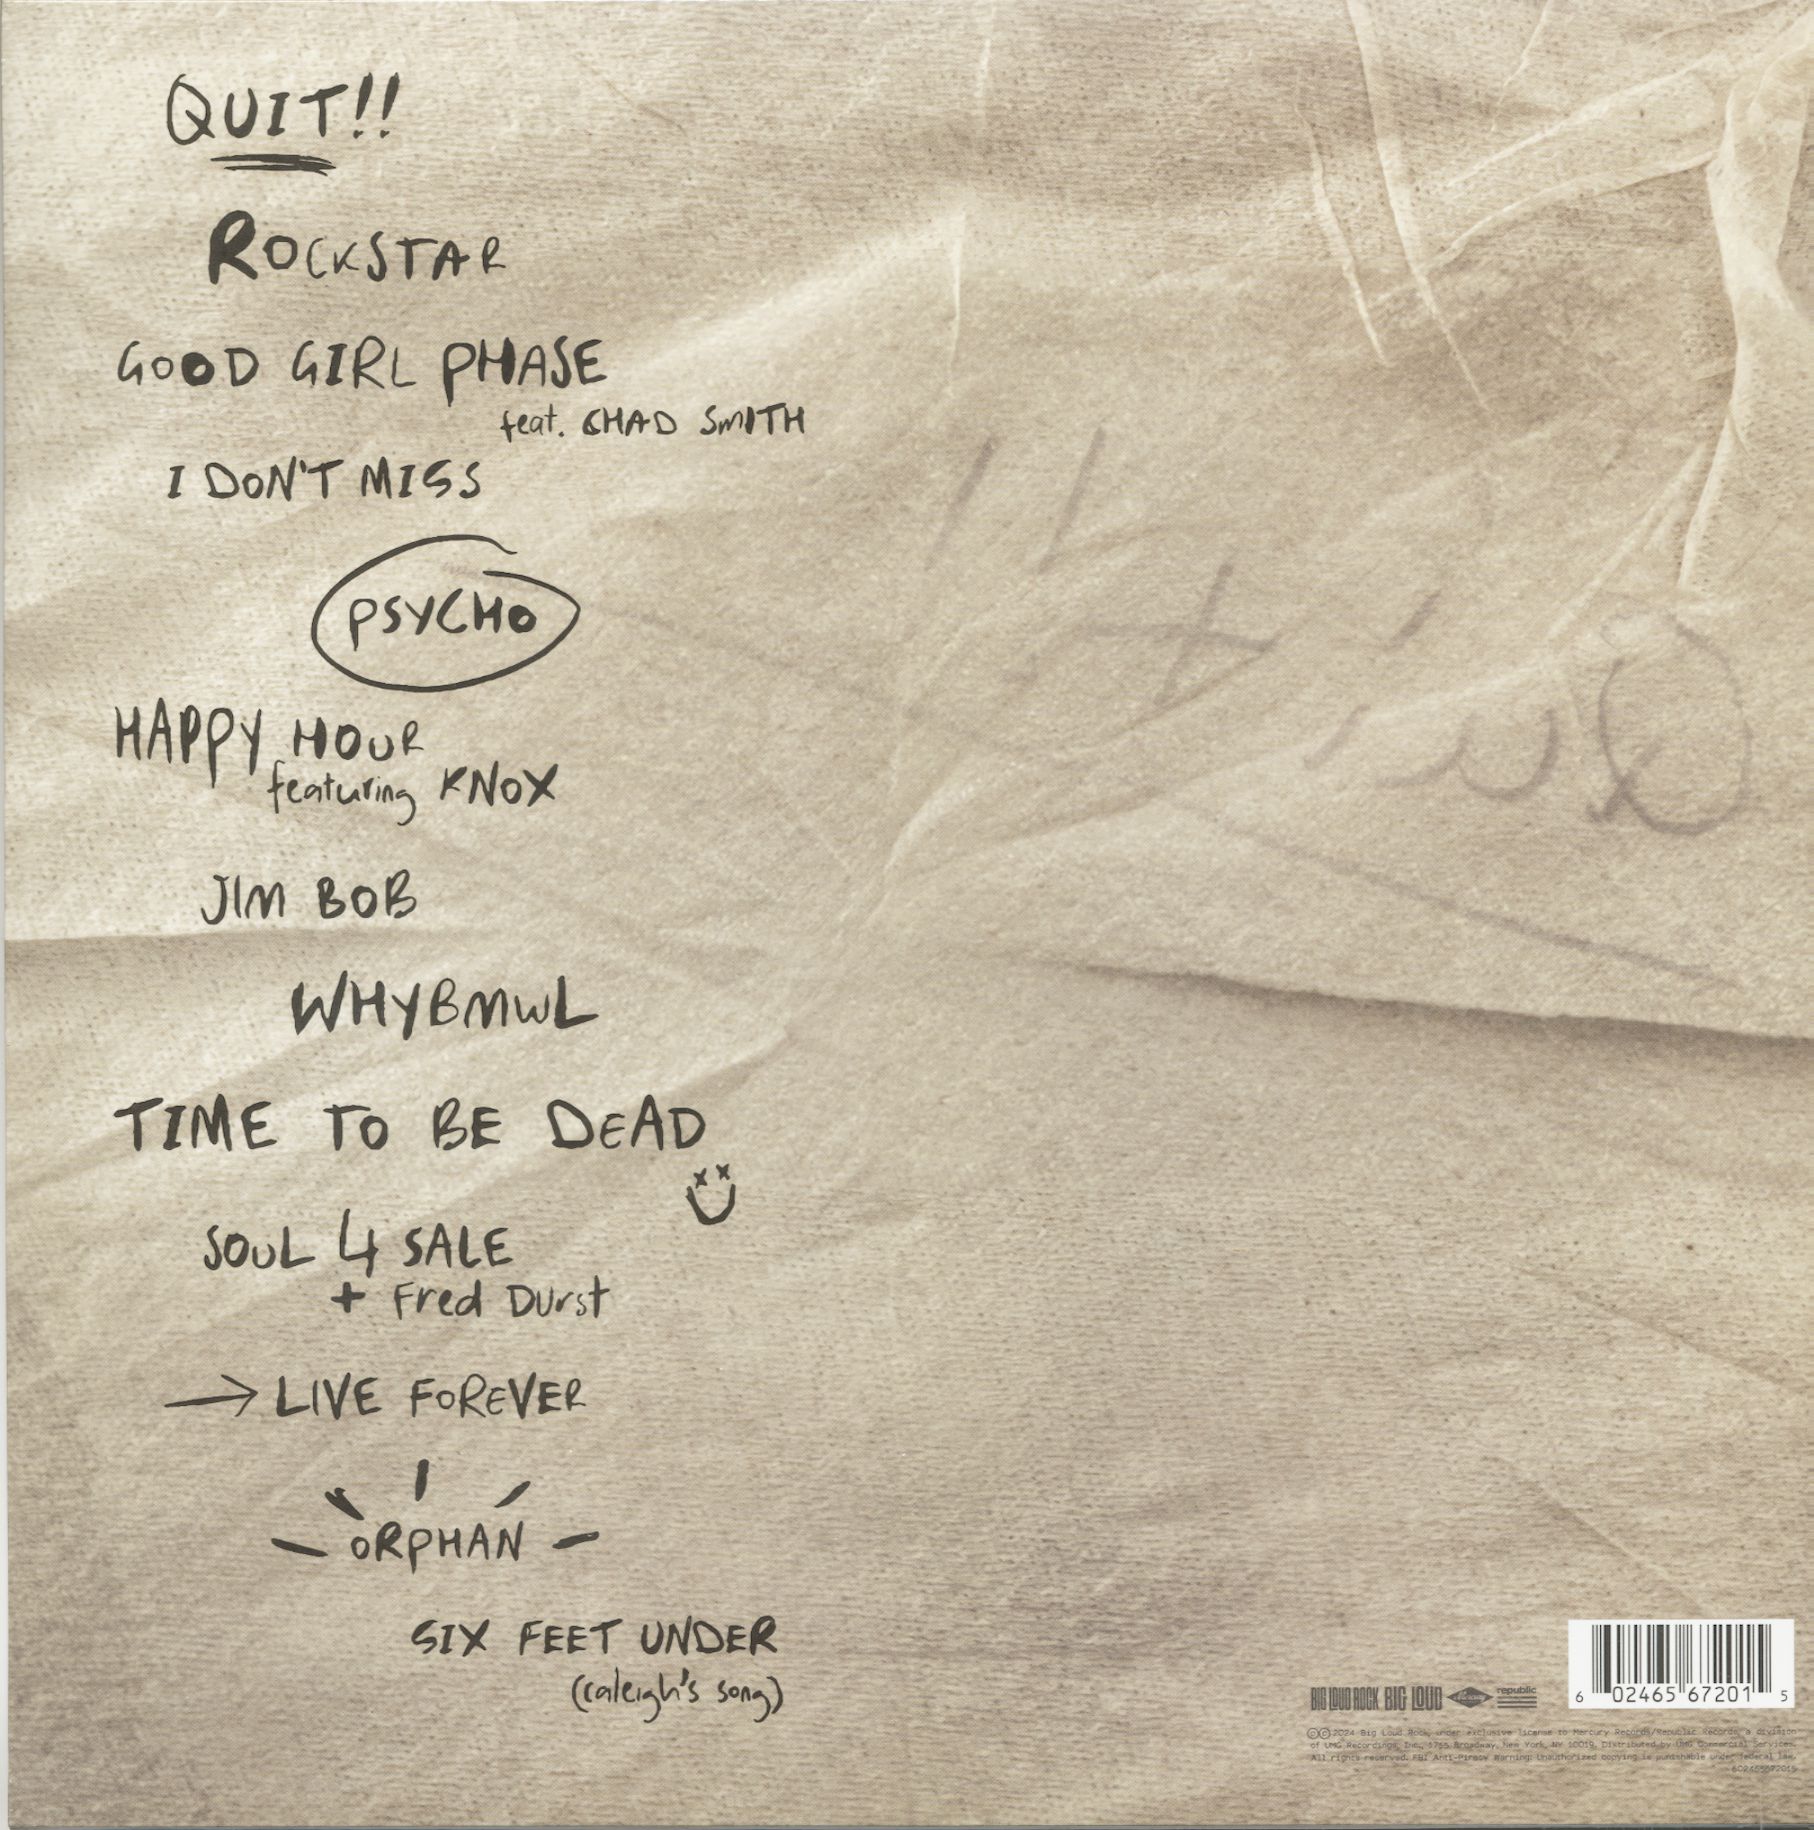 QUIT!!
ROCKSTAR
GOOD GIRL PHASE
feat. CHAD SMITH
I DON'T MISS
PSYCHO
HAPPY HOUR
featuring KNOX
JIM BOB
WHYBMWL
TIME TO BE DEAD
SOUL 4 SALE
+ Fred Durst
→ LIVE FOREVER
ORPHAN
SIX FEET UNDER
(caleigh's song)
BIG LOUD ROCK BIG LOUD republic
6 02465 67201 5
℗©2024 Big Loud Rock, under exclusive license to Mercury Records/Republic Records, a division
of UMG Recordings, Inc., 1755 Broadway, New York, NY 10019. Distributed by UMG Commercial Services.
All rights reserved. FBI Anti-Piracy Warning: Unauthorized copying is punishable under federal law.
602465672015